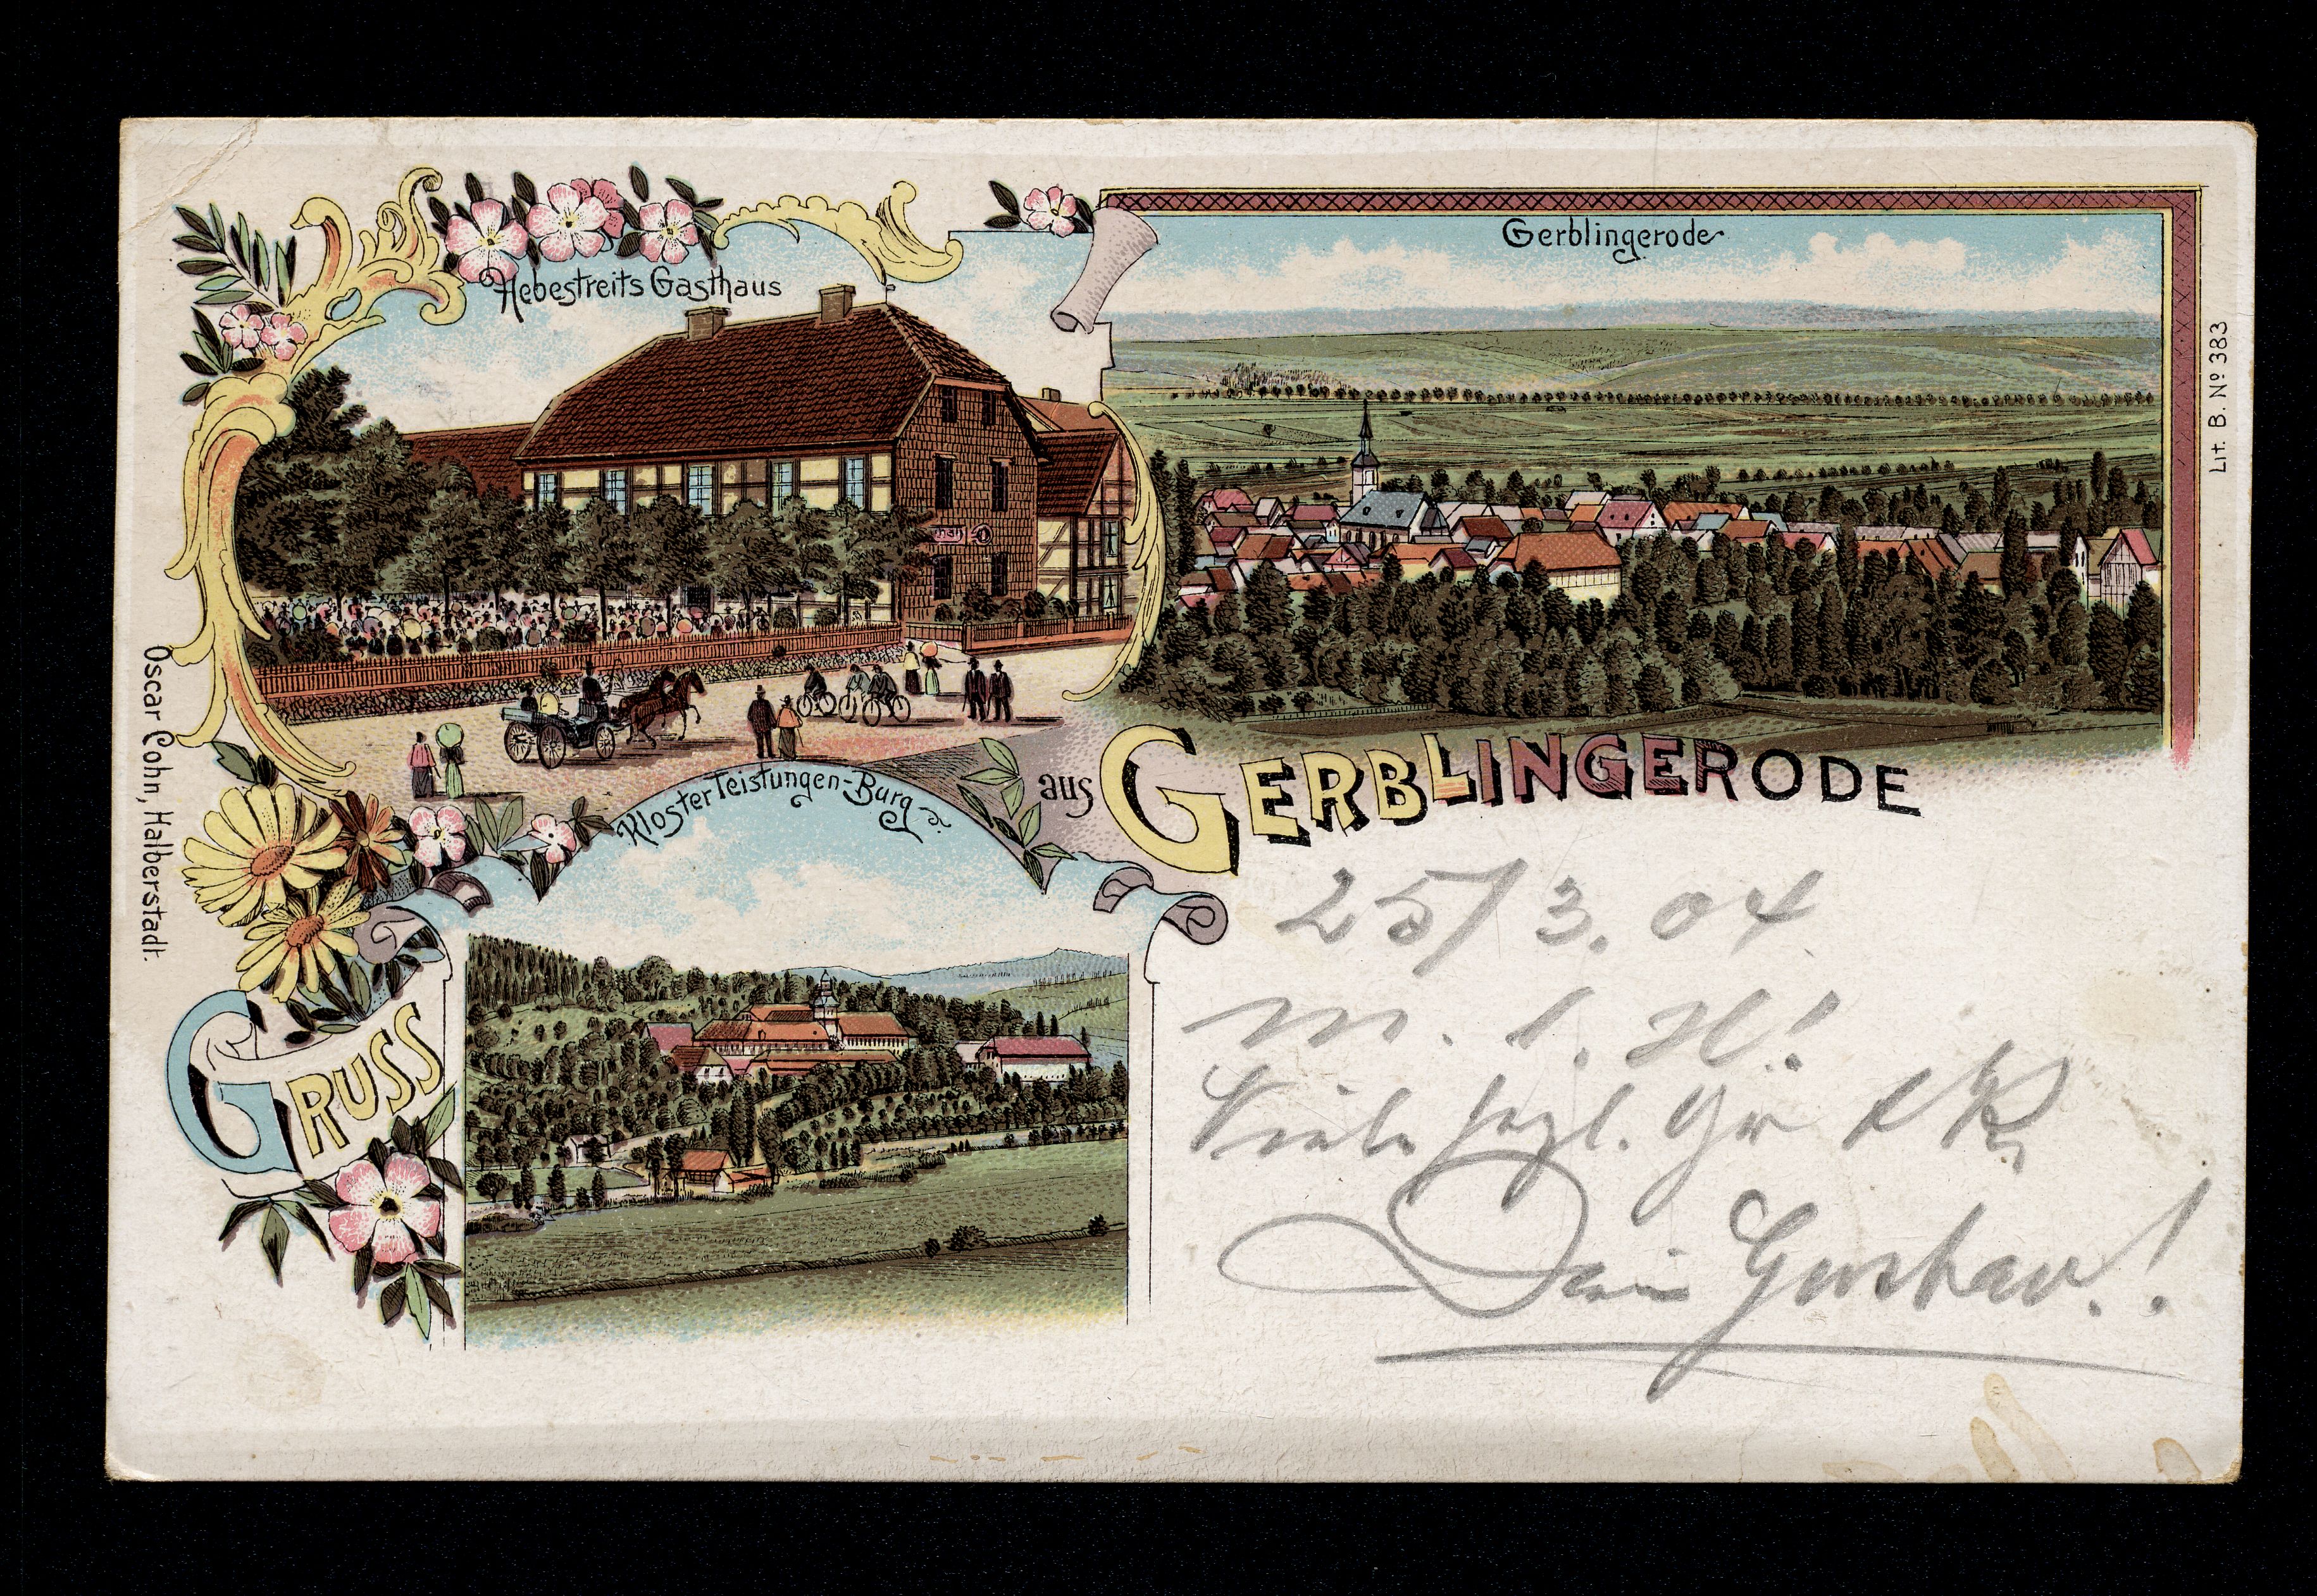 Hebestreits Gasthaus
Gerblingerode
Lit. B. Nº 383
Oscar Cohn, Halberstadt.
Kloster Teistungen-Burg
GRUSS
aus GERBLINGERODE
25/3.04
m. l. H!
Viele hzl. Gr
Dein Gustav.!